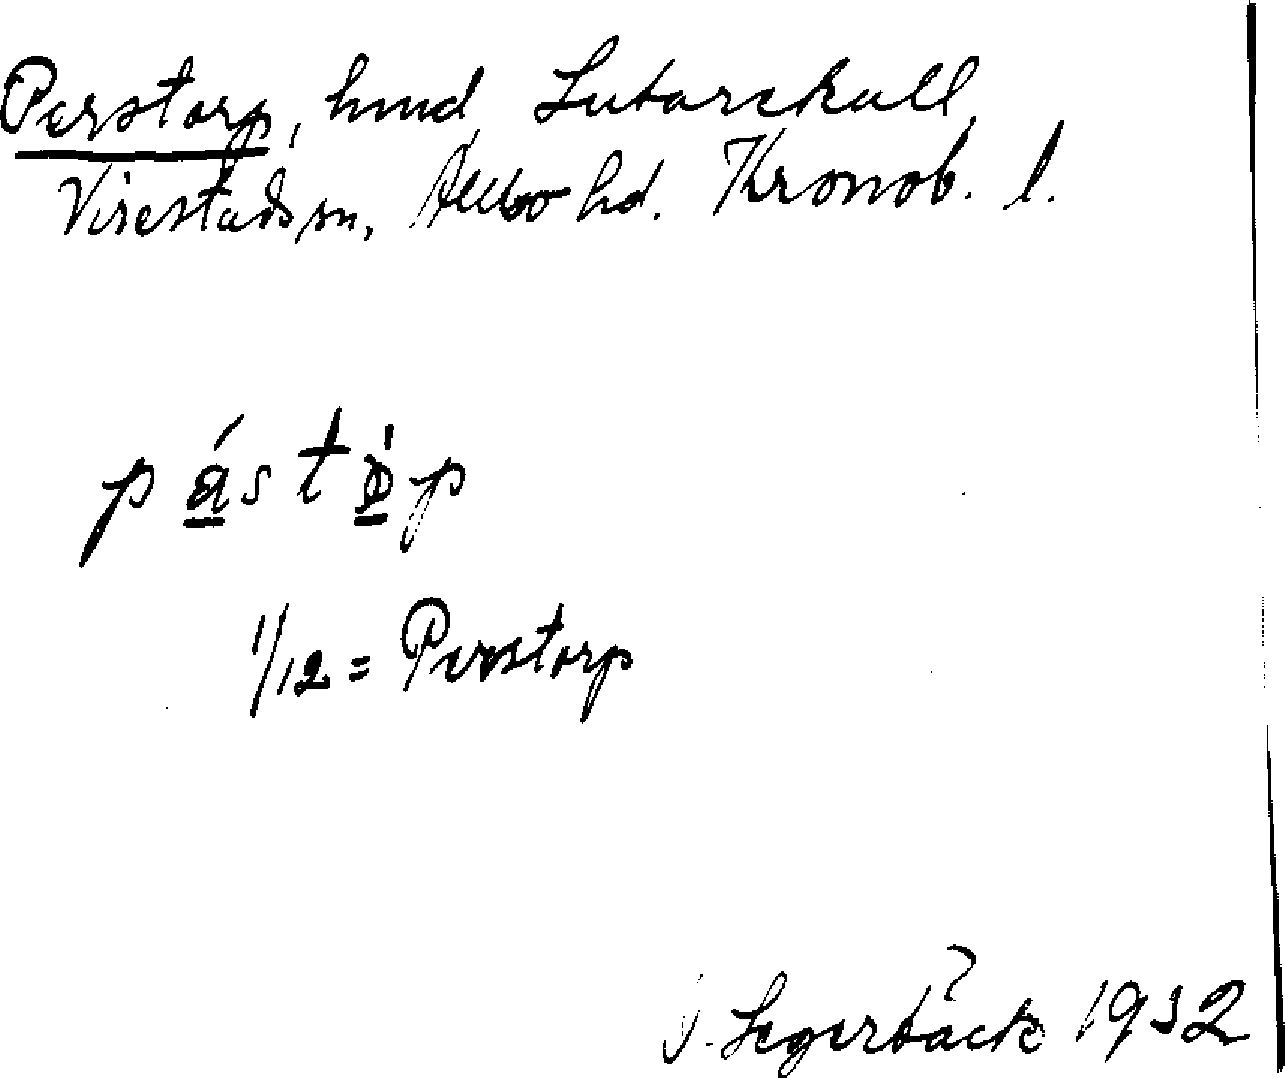 Perstorp, hmd Lutarekull,
Virestads sn, Allbo hd. Kronob. l.
pástòp
1/12 = Perstorp
J. Segerbäck 1932